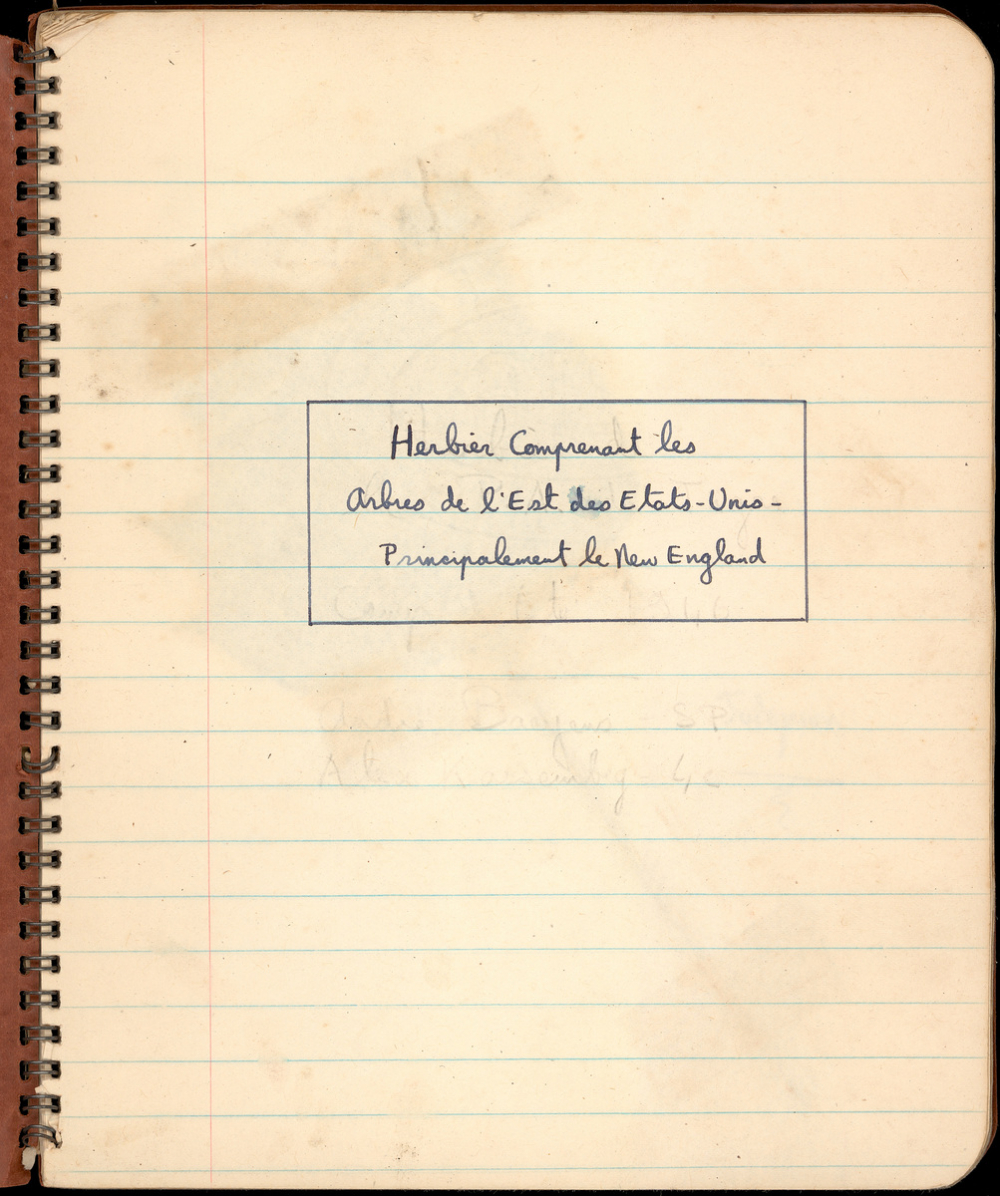 Herbier Comprenant les
Arbres de l'Est des Etats-Unis-
Principalement le New England